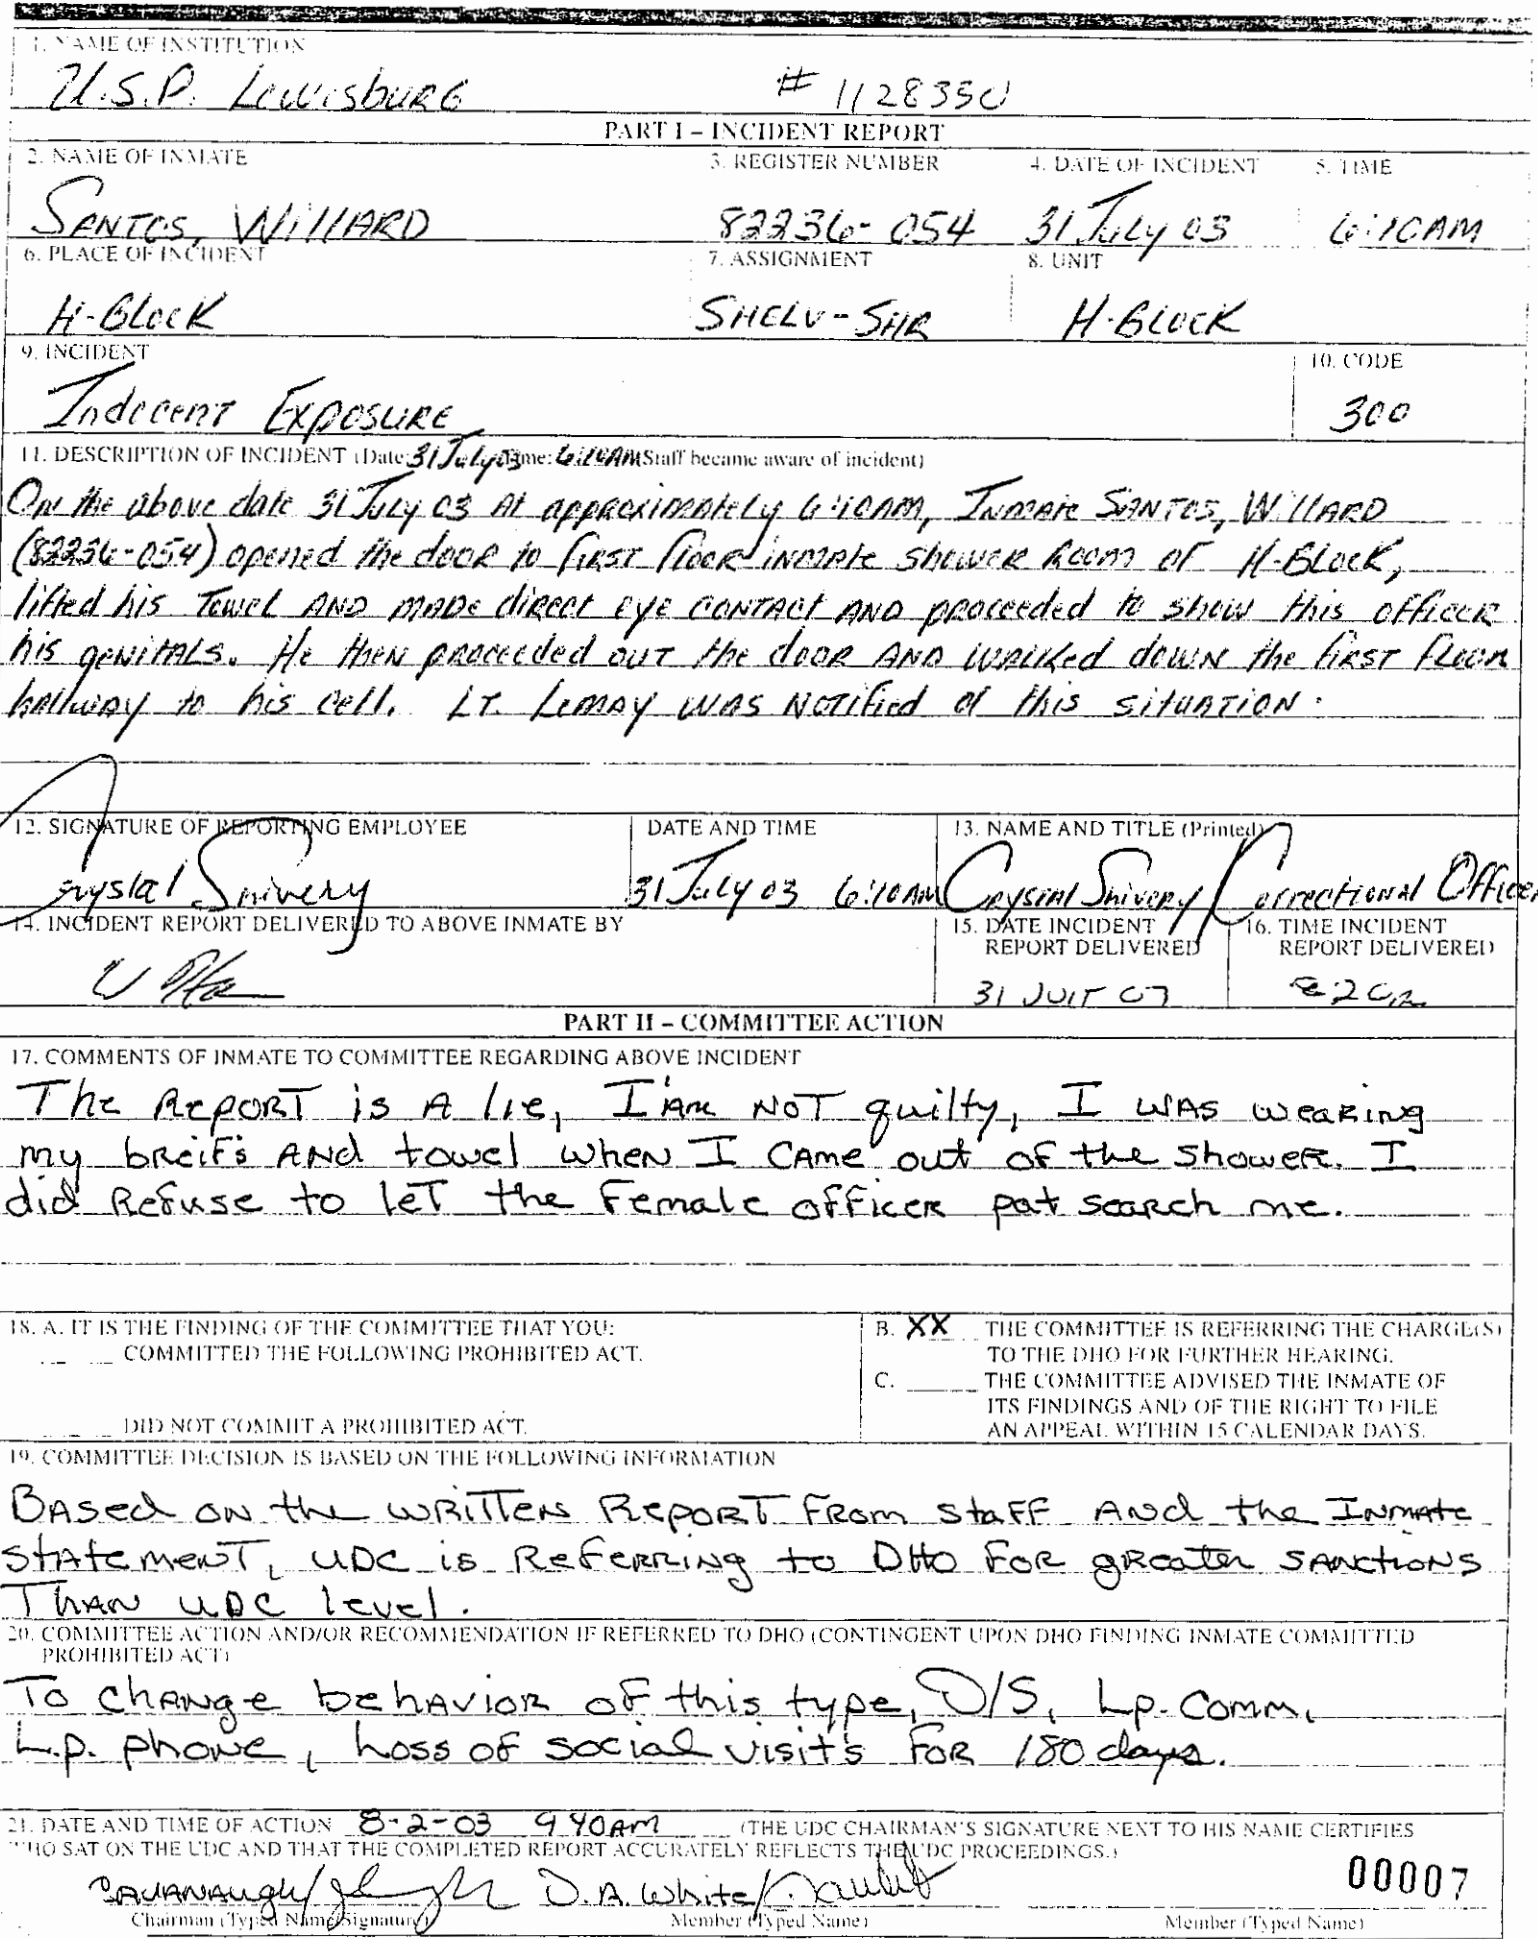 1. NAME OF INSTITUTION
U.S.P. Lewisburg # 1128350
PART I – INCIDENT REPORT
2. NAME OF INMATE 3. REGISTER NUMBER 4. DATE OF INCIDENT 5. TIME
Santos, Willard 82236-054 31 July 03 6:10AM
6. PLACE OF INCIDENT 7. ASSIGNMENT 8. UNIT
H-Block H-Block
9. INCIDENT 10. CODE
Indecent Exposure 300
11. DESCRIPTION OF INCIDENT (Date: 31 July 03 Time: 6:10AM Staff became aware of incident)
On the above date 31 July 03 At approximately 6:10am, Inmate Santos, Willard
(82236-054) opened the door to first floor inmate shower Room of H-Block,
lifted his Towel AND made direct eye contact AND proceeded to show this officer
his genitals. He then proceeded out the door AND walked down the first floor
hallway to his cell. LT. Lemay was Notified of this situation.
12. SIGNATURE OF REPORTING EMPLOYEE DATE AND TIME 13. NAME AND TITLE (Printed)
Crystal Snivery 31 July 03 6:10AM Crystal Snivery / Correctional Officer
14. INCIDENT REPORT DELIVERED TO ABOVE INMATE BY 15. DATE INCIDENT REPORT DELIVERED 16. TIME INCIDENT REPORT DELIVERED
31
PART II – COMMITTEE ACTION
17. COMMENTS OF INMATE TO COMMITTEE REGARDING ABOVE INCIDENT
The Report is A lie, I'Am NOT guilty, I WAS wearing
my breif's And towel when I came out of the shower. I
did Refuse to leT the Female officer pat search me.
18. A. IT IS THE FINDING OF THE COMMITTEE THAT YOU:
COMMITTED THE FOLLOWING PROHIBITED ACT.
DID NOT COMMIT A PROHIBITED ACT.
B. XX THE COMMITTEE IS REFERRING THE CHARGE(S)
TO THE DHO FOR FURTHER HEARING.
C. THE COMMITTEE ADVISED THE INMATE OF
ITS FINDINGS AND OF THE RIGHT TO FILE
AN APPEAL WITHIN 15 CALENDAR DAYS.
19. COMMITTEE DECISION IS BASED ON THE FOLLOWING INFORMATION
Based on the written Report From staff And the Inmate
statement, UDC is Referring to DHO For greater sanctions
Than UDC level.
20. COMMITTEE ACTION AND/OR RECOMMENDATION IF REFERRED TO DHO (CONTINGENT UPON DHO FINDING INMATE COMMITTED
PROHIBITED ACT)
To change behavior of this type, D/S, Lp. Comm,
L.p. phone, Loss of social visits For 180 days.
21. DATE AND TIME OF ACTION 8-2-03 9 40AM (THE UDC CHAIRMAN'S SIGNATURE NEXT TO HIS NAME CERTIFIES
WHO SAT ON THE UDC AND THAT THE COMPLETED REPORT ACCURATELY REFLECTS THE UDC PROCEEDINGS.)
00007
Cavanaugh/ D.A. White/
Chairman (Typed Name/Signature) Member (Typed Name) Member (Typed Name)